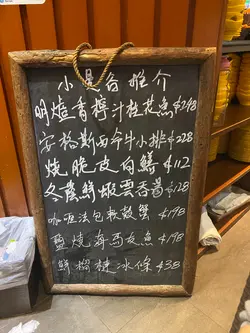 小曼谷推介
明爐香檸汁桂花魚$248
安格斯西冷牛小排$228
燒脆皮白鱔$112
冬蔭鮮蝦雲吞湯$128
咖喱法包軟殼蟹$198
鹽燒馬友魚$198
鮮榴槤冰條$38